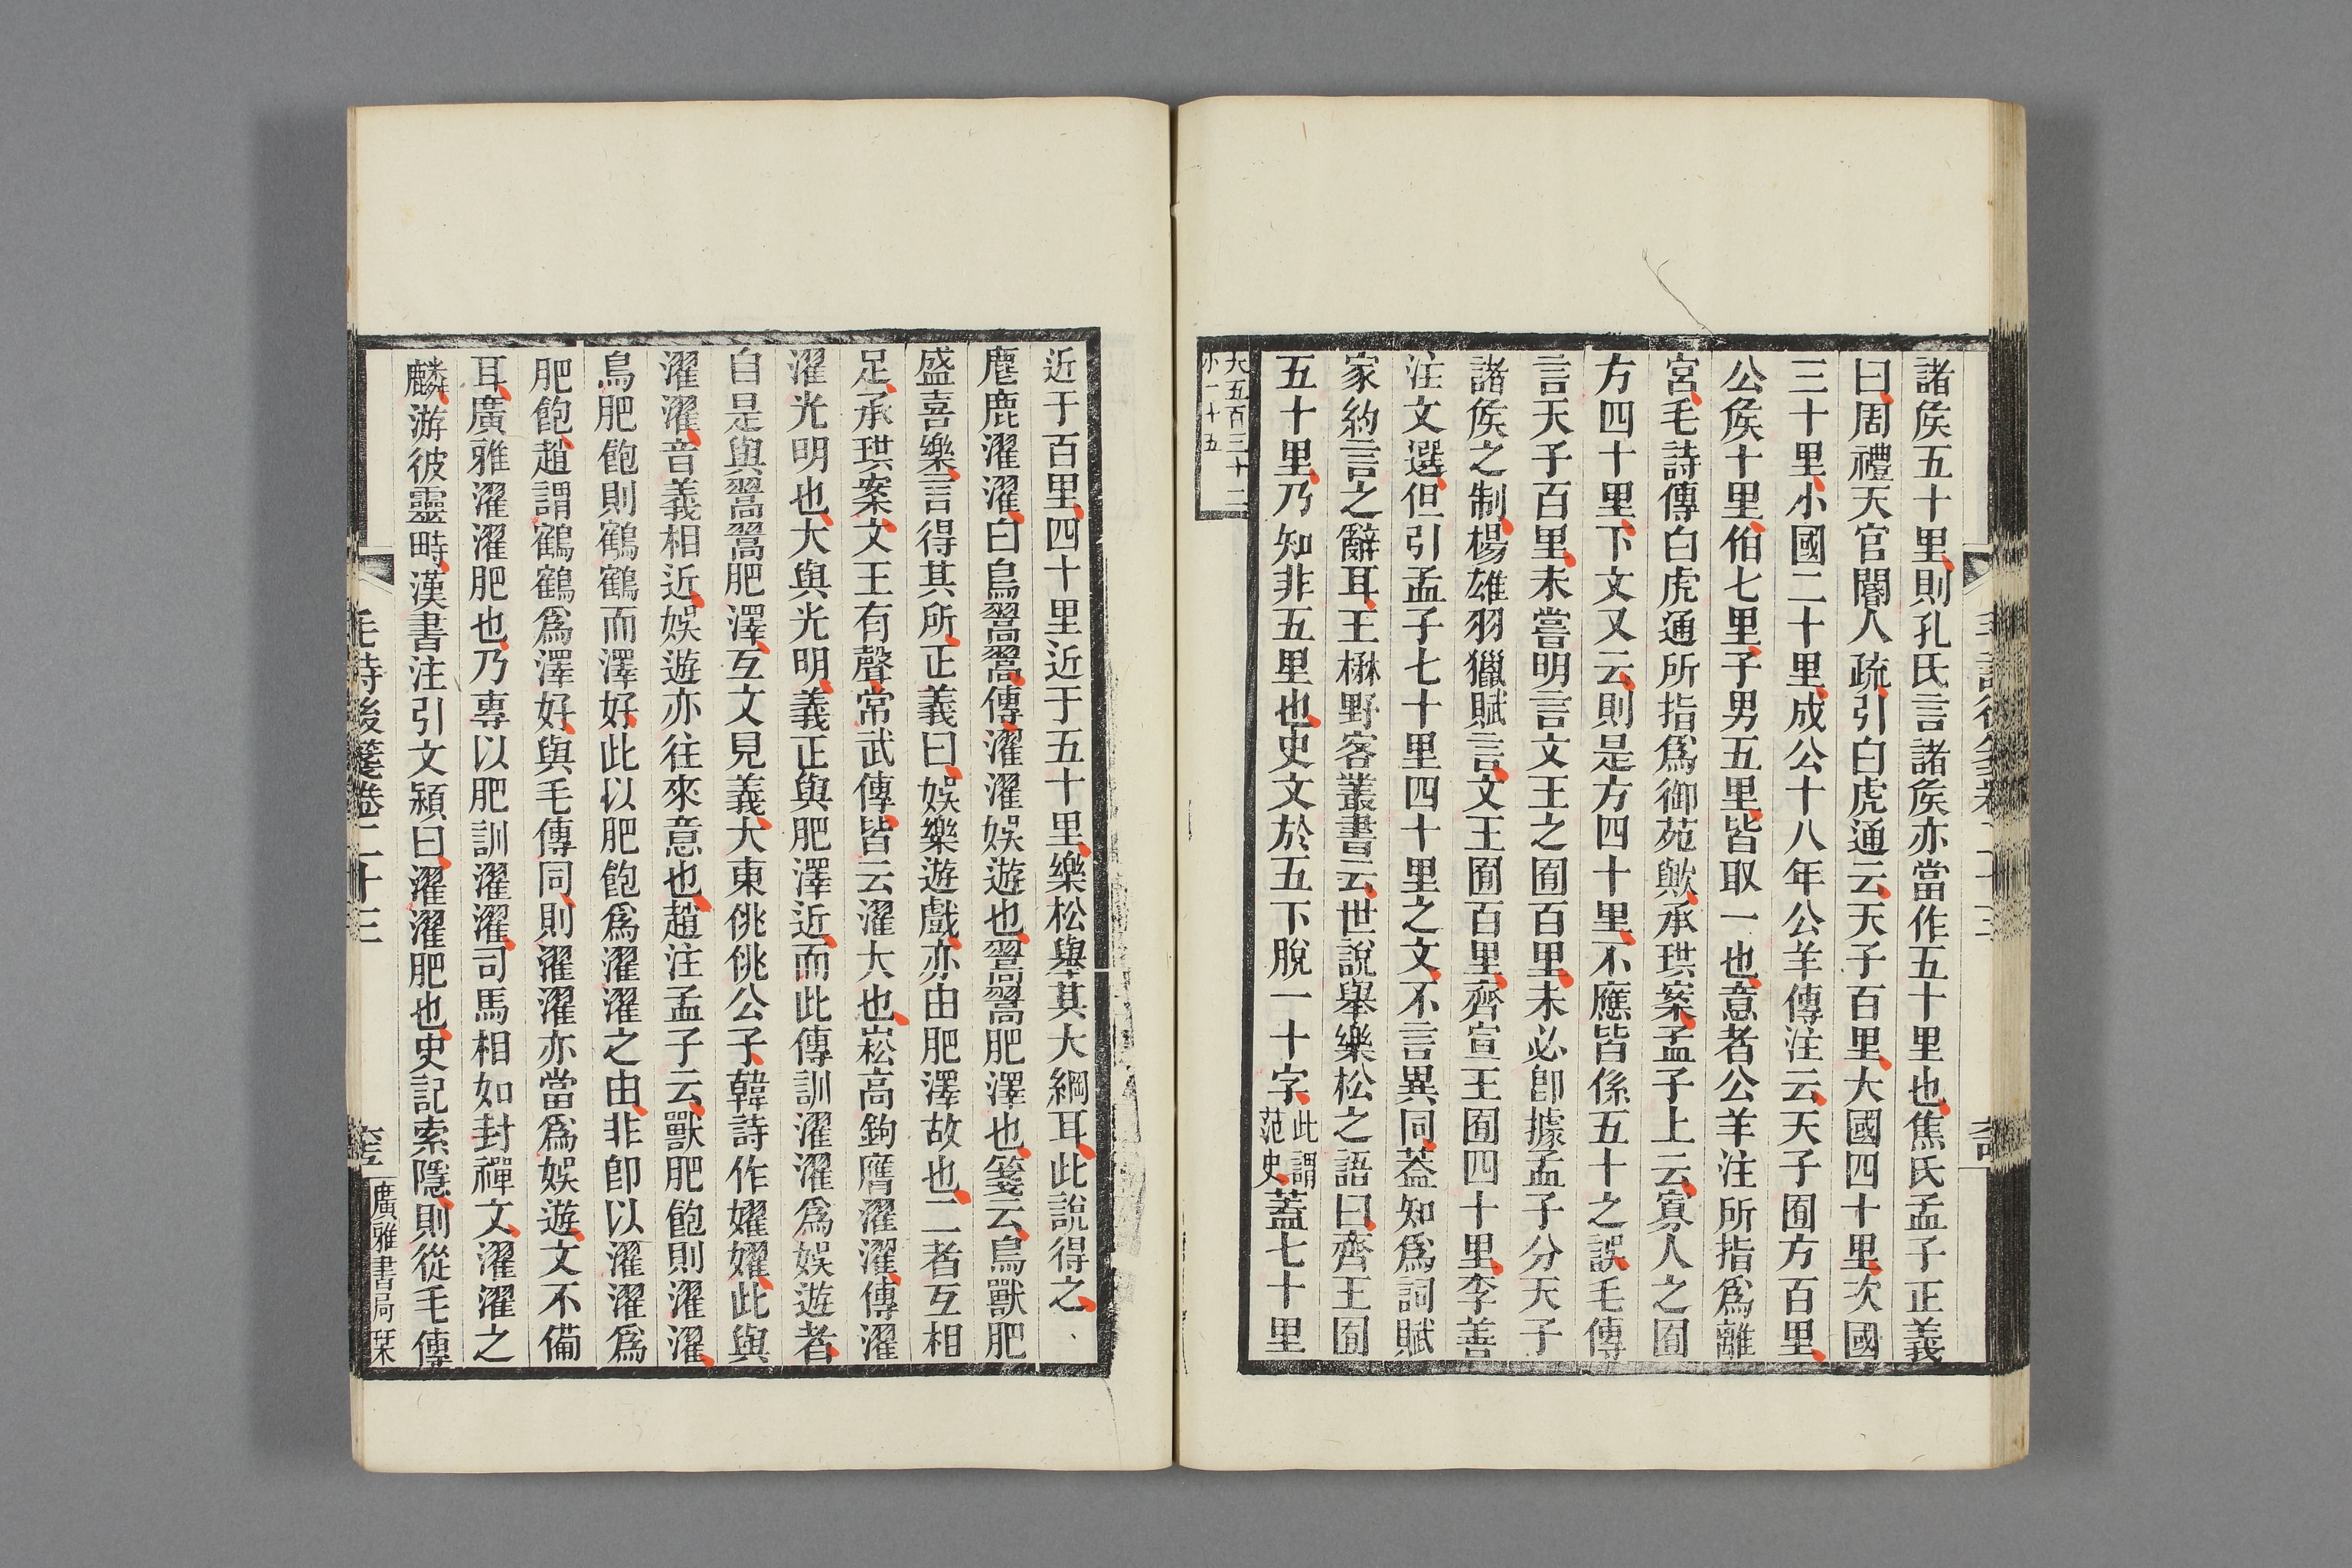 諸矦五十里則孔氏言諸矦亦當作五十里也焦氏孟子正義
曰周禮天官閽人疏引白虎通云天子百里大國四十里次國
三十里小國二十里成公十八年公羊傳注云天子囿方百里
公矦十里伯七里子男五里皆取一也意者公羊注所指爲離
宮毛詩傳白虎通所指爲御苑歟承珙案孟子上云寡人之囿
方四十里下文又云則是方四十里不應皆係五十之誤毛傳
言天子百里未嘗明言文王之囿百里未必卽據孟子分天子
諸矦之制楊雄羽獵賦言文王囿百里齊宣王囿四十里李善
注文選但引孟子七十里四十里之文不言異同葢知爲詞賦
家約言之辭耳王楙野客叢書云世說舉樂松之語曰齊王囿
五十里乃知非五里也史文於五下脫一十字此謂范史蓋七十里
大五百三十二
小一十五
近于百里四十里近于五十里樂松舉其大綱耳此說得之
麀鹿濯濯白鳥翯翯傳濯濯娛遊也翯翯肥澤也箋云鳥獸肥
盛喜樂言得其所正義曰娛樂遊戲亦由肥澤故也二者互相
足承珙案文王有聲常武傳皆云濯大也崧高鉤膺濯濯傳濯
濯光明也大與光明義正與肥澤近而此傳訓濯濯爲娛遊者
自是與翯翯肥澤互文見義大東佻佻公子韓詩作嬥嬥此與
濯濯音義相近娛遊亦往來意也趙注孟子云獸肥飽則濯濯
鳥肥飽則鶴鶴而澤好此以肥飽爲濯濯之由非卽以濯濯爲
肥飽趙謂鶴鶴爲澤好與毛傳同則濯濯亦當爲娛遊文不備
耳廣雅濯濯肥也乃專以肥訓濯濯司馬相如封禪文濯濯之
麟游彼靈畤漢書注引文穎曰濯濯肥也史記索隱則從毛傳
毛詩後箋卷二十三
廣雅書局栞